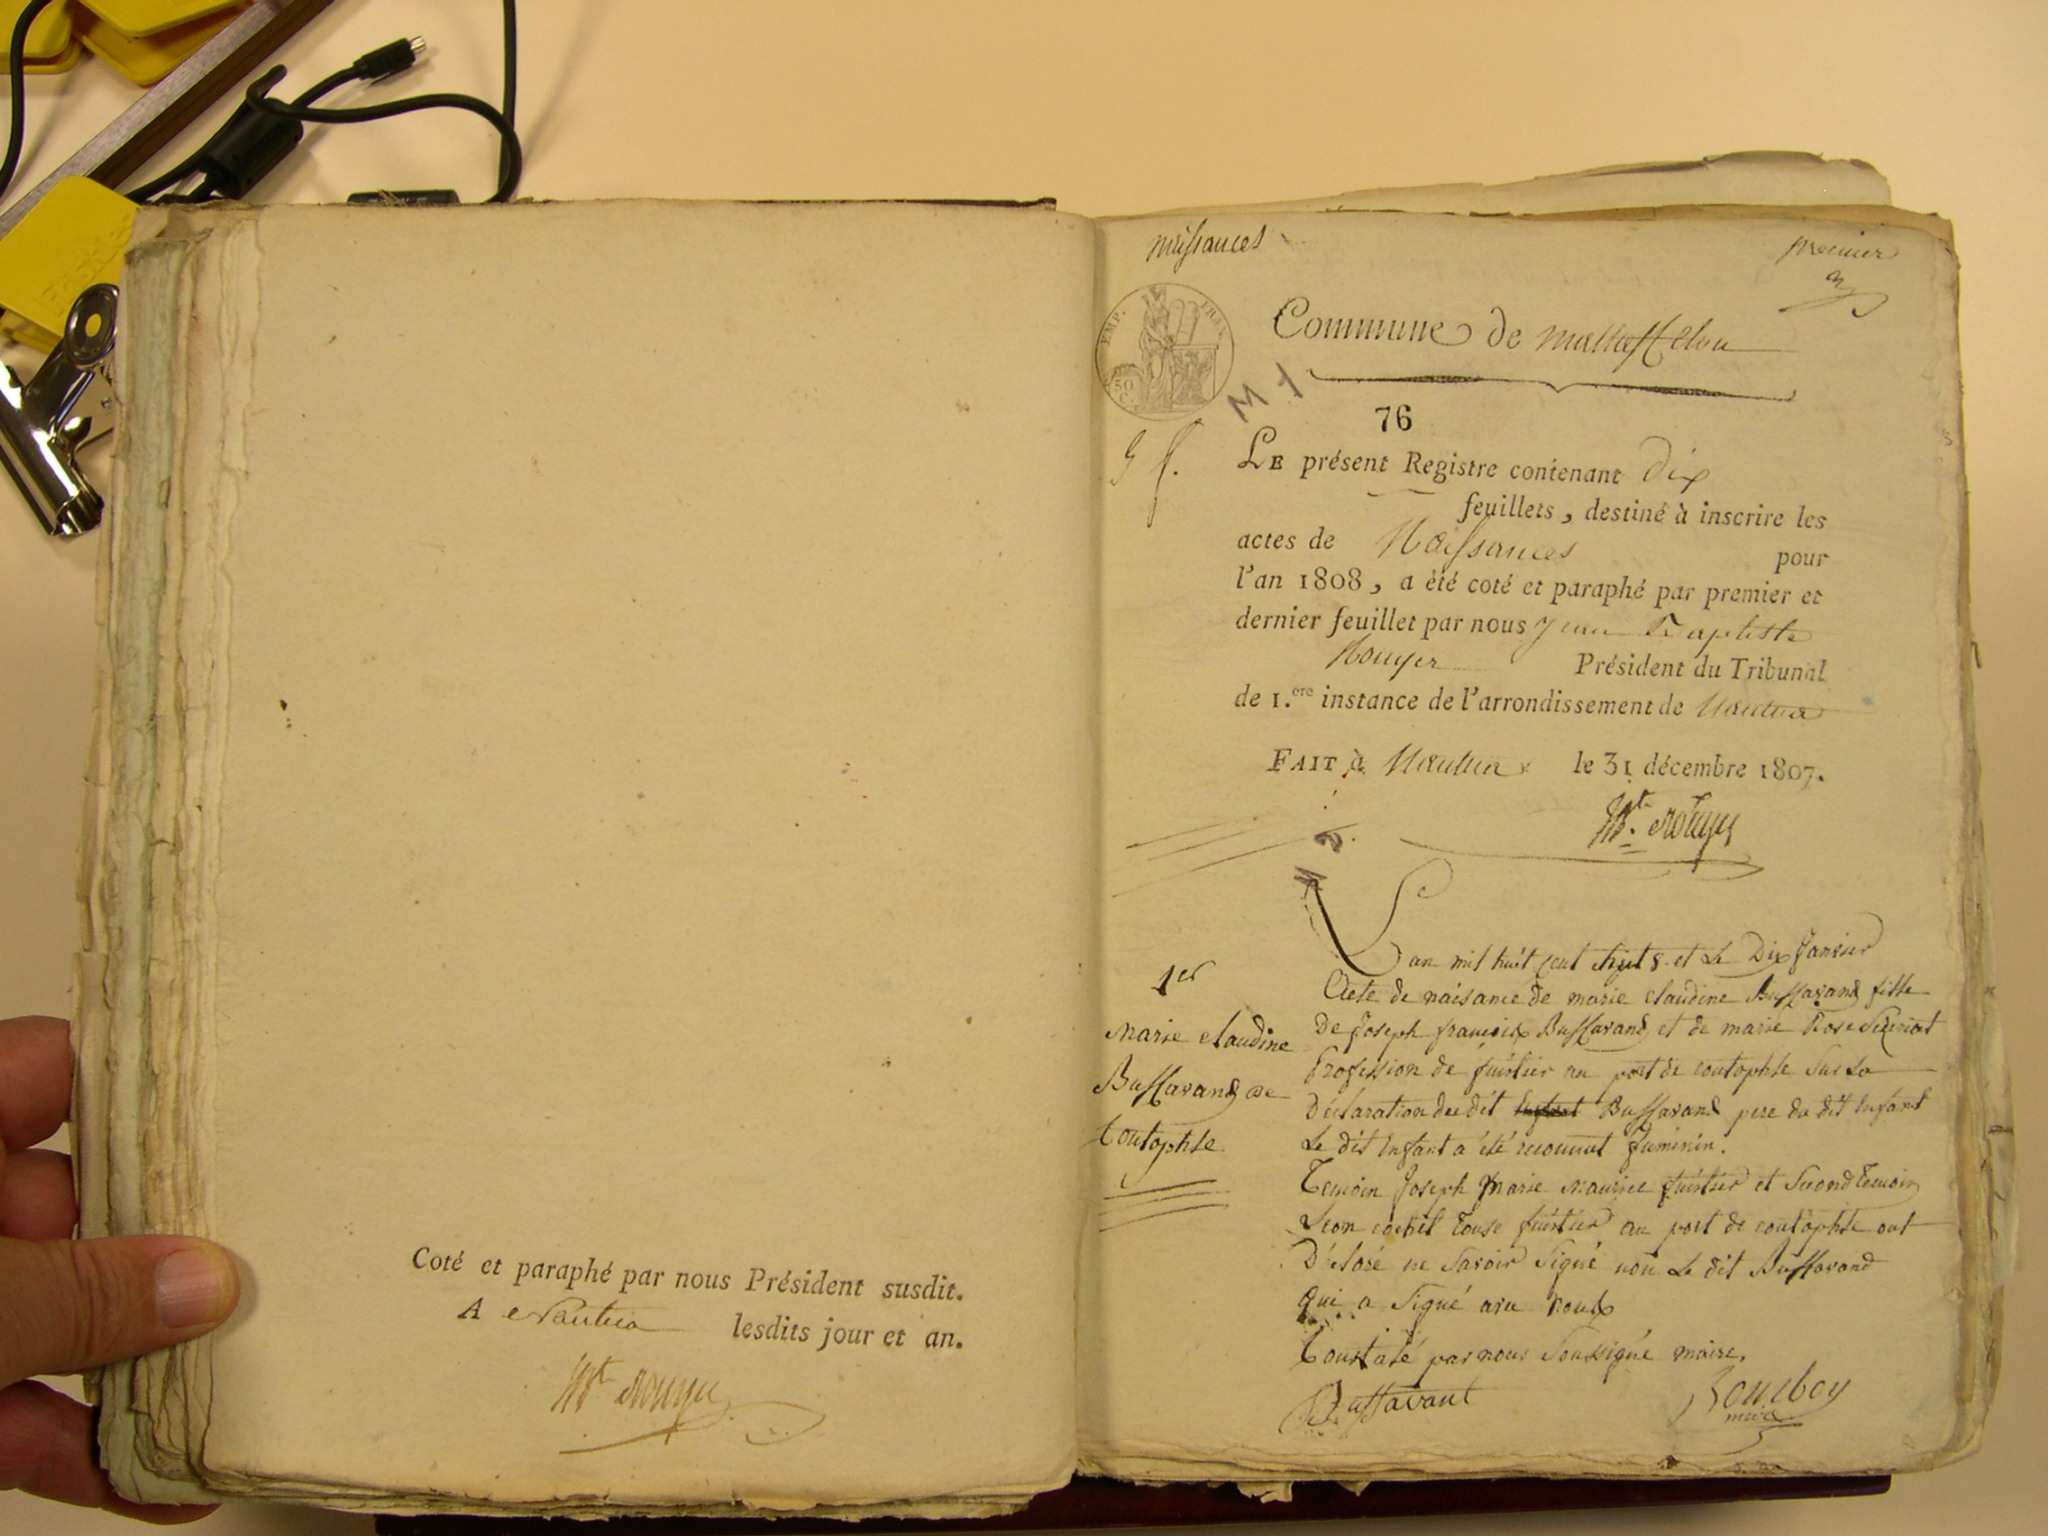 Coté et paraphé par nous Président susdit.
A Nantua lesdits jour et an.
naissances
premier
EMP. FRAN.
50
C.
Commune de
76
LE présent Registre contenant dix
feuillets, destiné à inscrire les
actes de Naissances pour
l'an 1808, a été coté et paraphé par premier et
dernier feuillet par nous Jean Baptiste
Rouyer Président du Tribunal
de 1.ere instance de l'arrondissement de Nantua
FAIT à Nantua le 31 décembre 1807.
1er
Marie Claudine
Buffavand de
Coutophle
Lan mil huit cent huit 8 et Le Dix Janvier
Acte de naisance de marie claudine Buffavand fille
De Joseph françois Buffavand et de marie Rose
Profession de au port de coutophle Sur La
Déclaration du dit Buffavand pere du dit Enfant
Le dit Enfant a été reconnut féminin.
Temoin Joseph marie maurice et Second Temoin
Leon au port de coutophle ont
Déclaré ne Savoir Signé non Le dit Buffavand
qui a Signé avu nous
Constaté par nous Soussigné maire.
Buffavant
maire